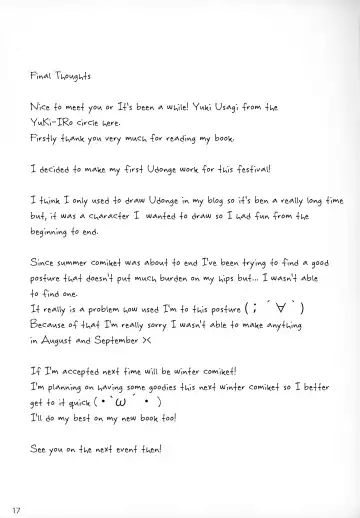 Final Thoughts
Nice to meet you or It's been a while! Yuki Usagi from the
YuKi-IRo circle here.
Firstly thank you very much for reading my book.
I decided to make my first Udonge work for this festival!
I think I only used to draw Udonge in my blog so it's ben a really long time
but, it was a character I wanted to draw so I had fun from the
beginning to end.
Since summer comiket was about to end I've been trying to find a good
posture that doesn't put much burden on my hips but... I wasn't able
to find one.
It really is a problem how used I'm to this posture (；´∀｀)
Because of that I'm really sorry I wasn't able to make anything
in August and September ><
If I'm accepted next time will be winter comiket!
I'm planning on having some goodies this next winter comiket so I better
get to it quick (・`ω´・)
I'll do my best on my new book too!
See you on the next event then!
17